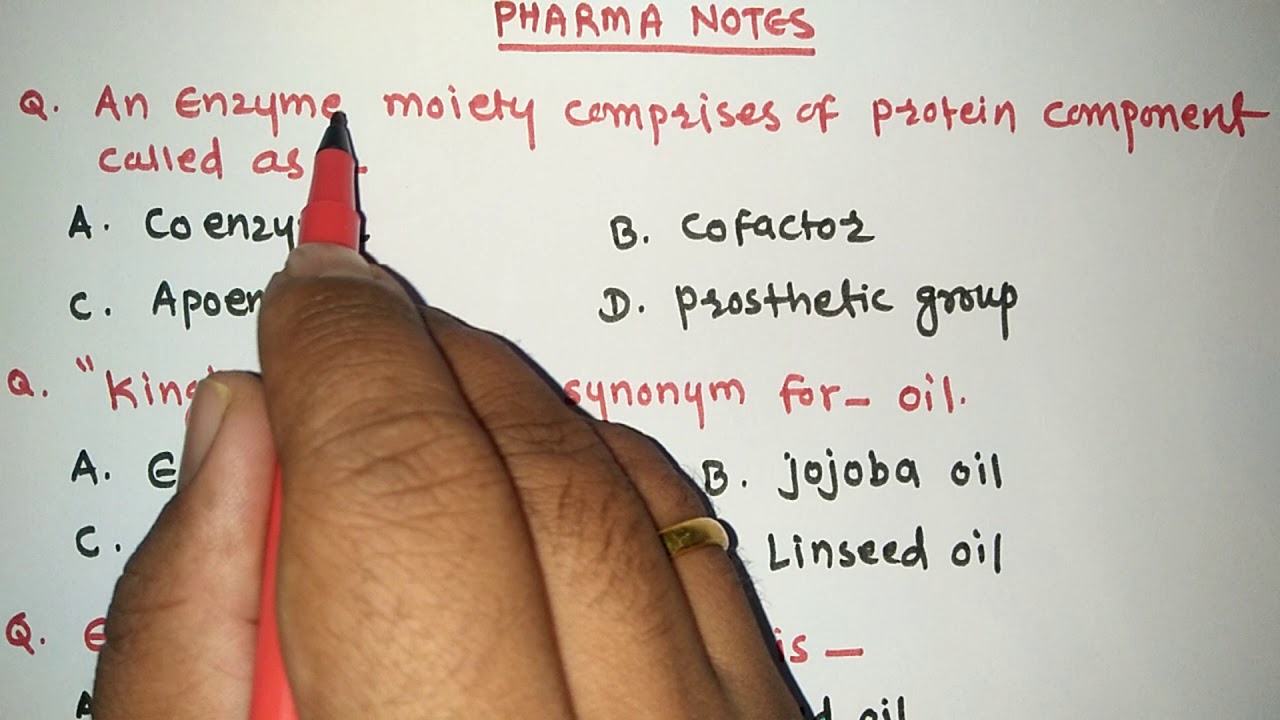 PHARMA NOTES
Q. An Enzyme moiety comprises of protein component
called as _
A. Coenzy B. Cofactor
C. Apoen D. Prosthetic group
Q. "King synonym for_ oil.
A. E B. Jojoba oil
C. Linseed oil
Q. E is _
A oil